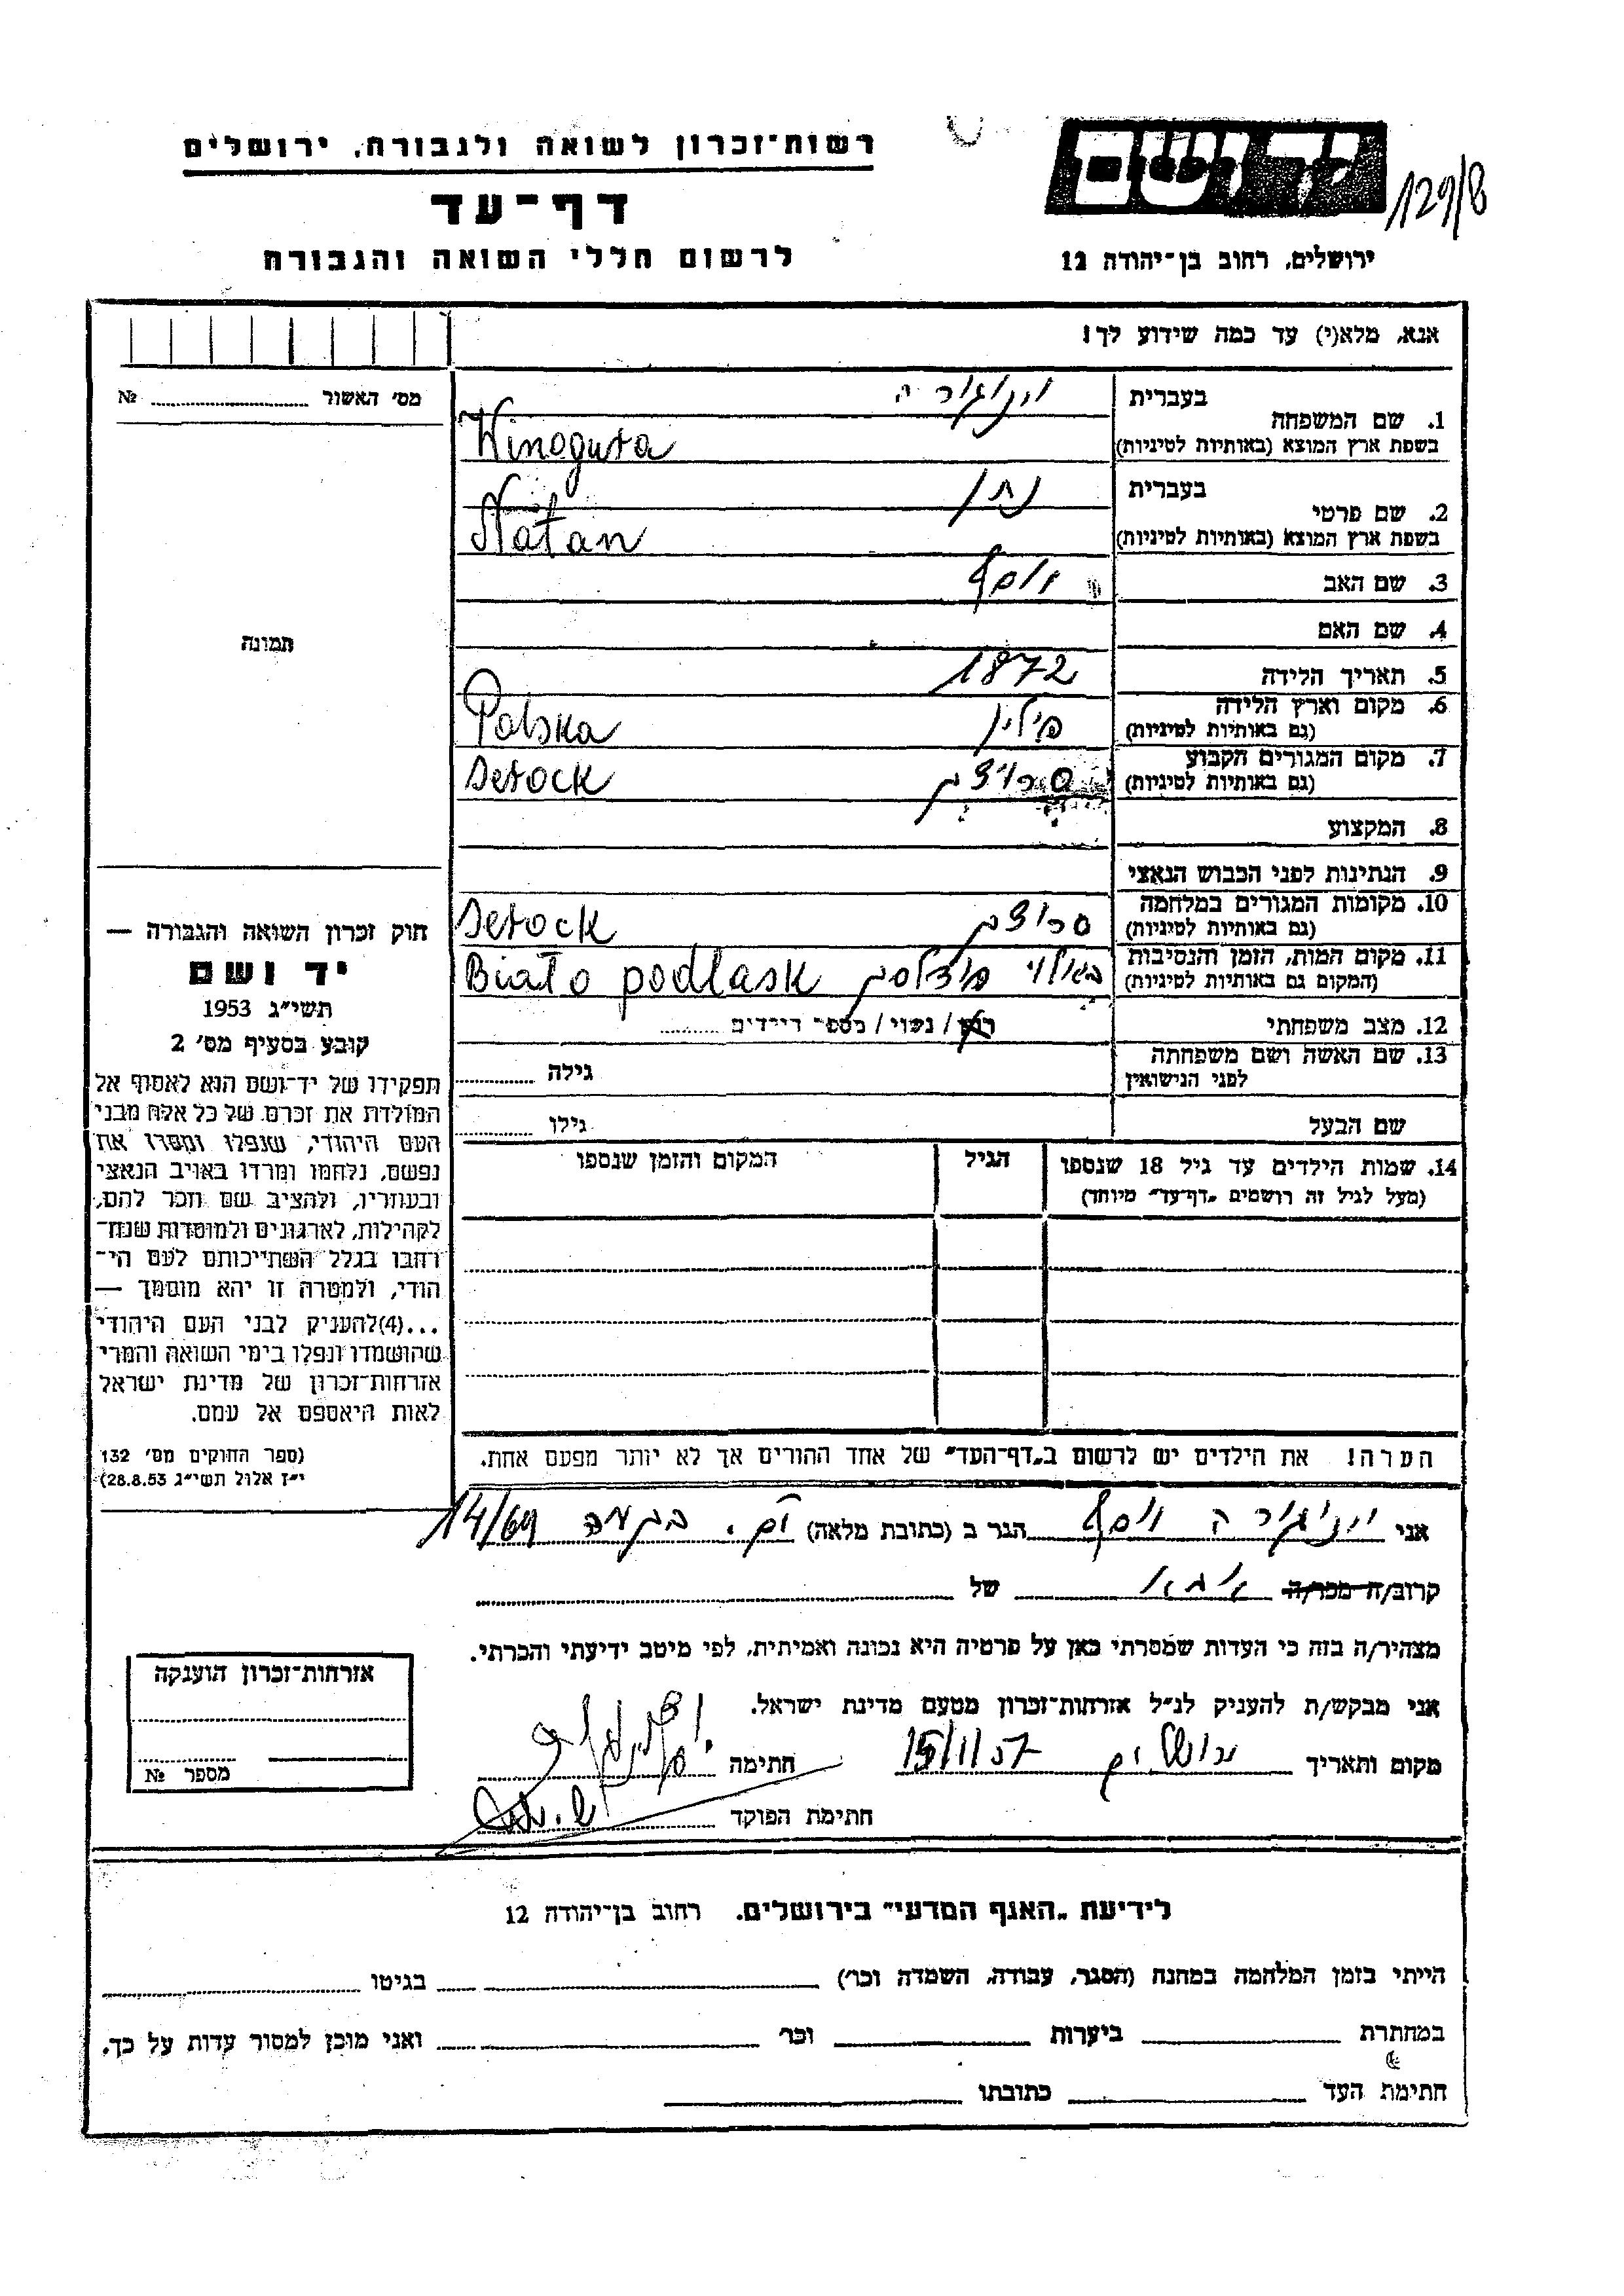 רשות־זכרון לשואה ולגבורה, ירושלים
דף־עד
לרשום חללי השואה והגבורה
יד ושם
129/8
ירושלים, רחוב בן־יהודה 12
אנא, מלא(י) עד כמה שידוע לך!
מס׳ האשור №
תמונה
1. שם המשפחה
בעברית
בשפת ארץ המוצא (באותיות לטיניות) Winogura
2. שם פרטי
בעברית נתן
בשפת ארץ המוצא (באותיות לטיניות) Natan
3. שם האב יוסף
4. שם האם
5. תאריך הלידה 1872
6. מקום וארץ הלידה
(גם באותיות לטיניות) פולין Polska
7. מקום המגורים הקבוע
(גם באותיות לטיניות) סרוצק Serock
8. המקצוע
9. הנתינות לפני הכבוש הנאצי
10. מקומות המגורים במלחמה
(גם באותיות לטיניות) סרוצק Serock
11. מקום המות, הזמן והנסיבות
(המקום גם באותיות לטיניות) Biało podlask
12. מצב משפחתי רוק / נשוי / מספר הילדים
13. שם האשה ושם משפחתה
לפני הנישואין גילה
שם הבעל גילו
14. שמות הילדים עד גיל 18 שנספו
(מעל לגיל זה רושמים „דף־עד״ מיוחד)
הגיל
המקום והזמן שנספו
חוק זכרון השואה והגבורה —
יד ושם
תשי״ג 1953
קובע בסעיף מס׳ 2
תפקידו של יד־ושם הוא לאסוף אל
המולדת את זכרם של כל אלה מבני
העם היהודי, שנפלו ומסרו את
נפשם, נלחמו ומרדו באויב הנאצי
ובעוזריו, ולהציב שם וזכר להם,
לקהילות, לארגונים ולמוסדות שנח־
רבו בגלל השתייכותם לעם הי־
הודי, ולמטרה זו יהא מוסמך —
...(4)להעניק לבני העם היהודי
שהושמדו ונפלו בימי השואה והמרי
אזרחות־זכרון של מדינת ישראל
לאות היאספם אל עמם.
(ספר החוקים מס׳ 132
י״ז אלול תשי״ג 28.8.53)
הערה! את הילדים יש לרשום ב„דף־העד״ של אחד ההורים אך לא יותר מפעם אחת.
אני יוסף הגר ב (כתובת מלאה) 14/69
קרוב/ה מכר/ה אבא של
מצהיר/ה בזה כי העדות שמסרתי כאן על פרטיה היא נכונה ואמיתית, לפי מיטב ידיעתי והכרתי.
אני מבקש/ת להעניק לנ״ל אזרחות־זכרון מטעם מדינת ישראל.
מקום ותאריך 15/11 57 חתימה
חתימת הפוקד
אזרחות־זכרון הוענקה
מספר №
לידיעת „האגף המדעי״ בירושלים, רחוב בן־יהודה 12
הייתי בזמן המלחמה במחנה (הסגר, עבודה, השמדה וכו׳) בגיטו
במחתרת ביערות וכו׳ ואני מוכן למסור עדות על כך.
חתימת העד כתובתו